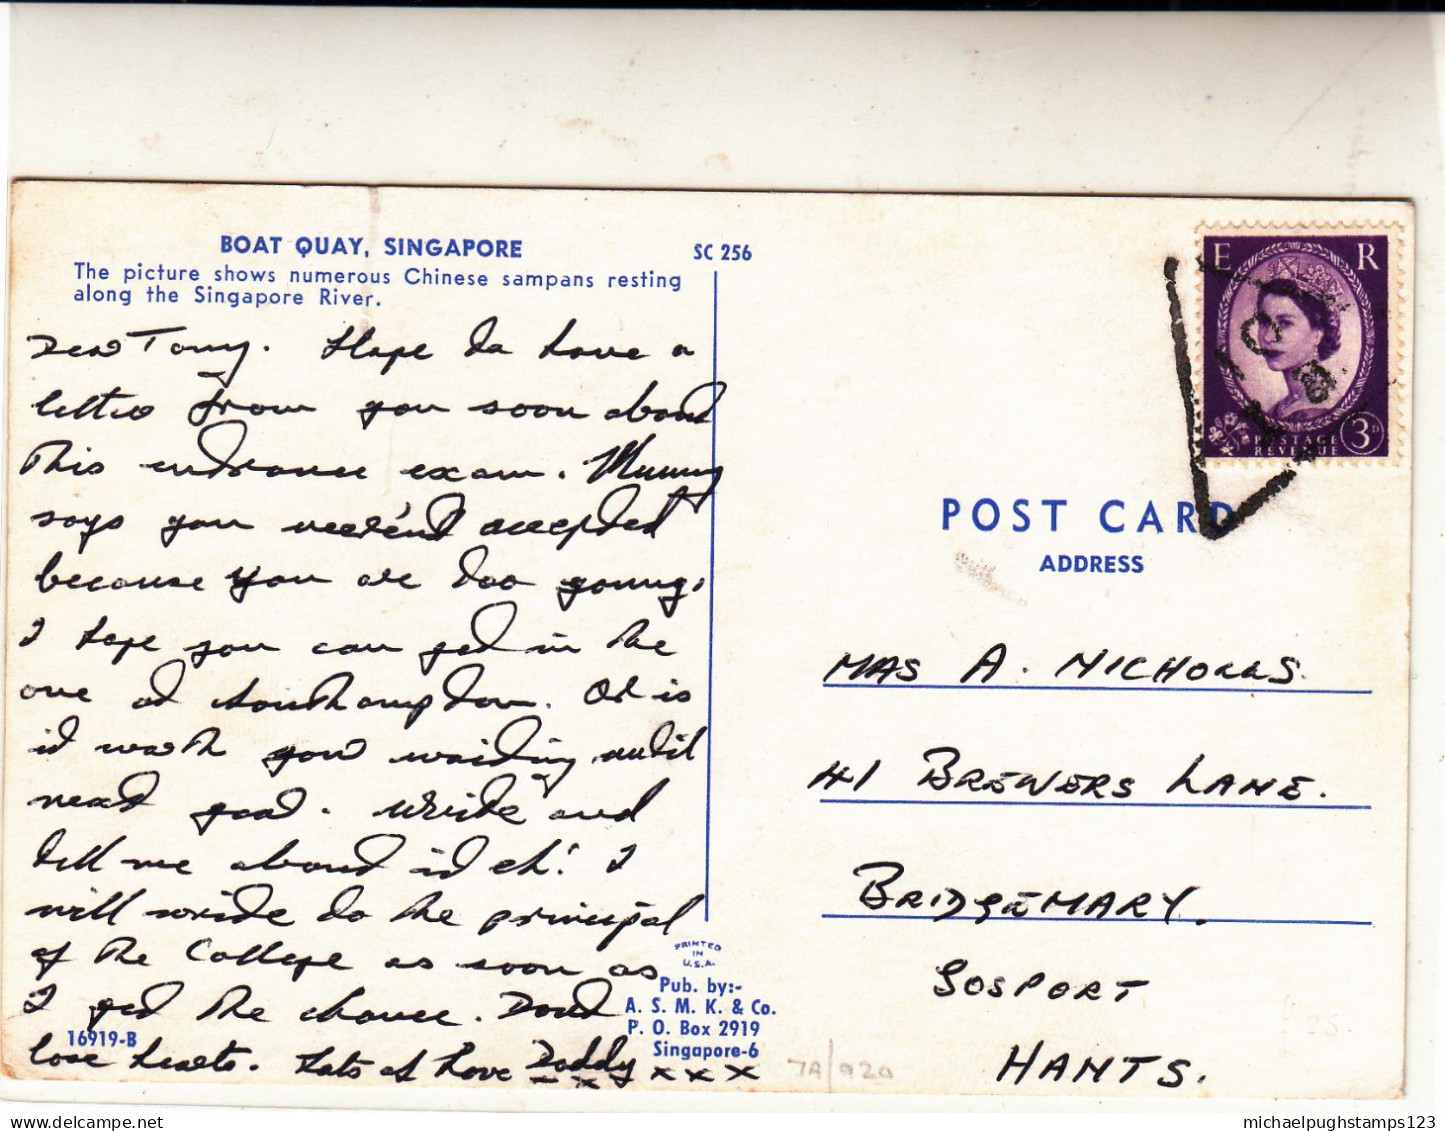 BOAT QUAY, SINGAPORE
SC 256
The picture shows numerous Chinese sampans resting
along the Singapore River.
Dear Tony. Hope to have a
letter from you soon about
this entrance exam. Mummy
says you weren't accepted
because you are too young.
I hope you can get in the
one at Southampton. Or is
it worth you waiting until
next year. Write and
tell me about it eh! I
will write to the principal
of the College as soon as
I get the chance. Dont
lose hearts. Lots of Love Daddy
x x x x
16919-B
PRINTED
IN
U.S.A.
Pub. by:-
A. S. M. K. & Co.
P. O. Box 2919
Singapore-6
E R
POSTAGE
REVENUE
3D
POST CARD
ADDRESS
MAS A. NICHOLLS.
41 BREWERS LANE.
BRIDGEMARY.
GOSPORT
HANTS.
7A/920
£25.
michaelpughstamps123